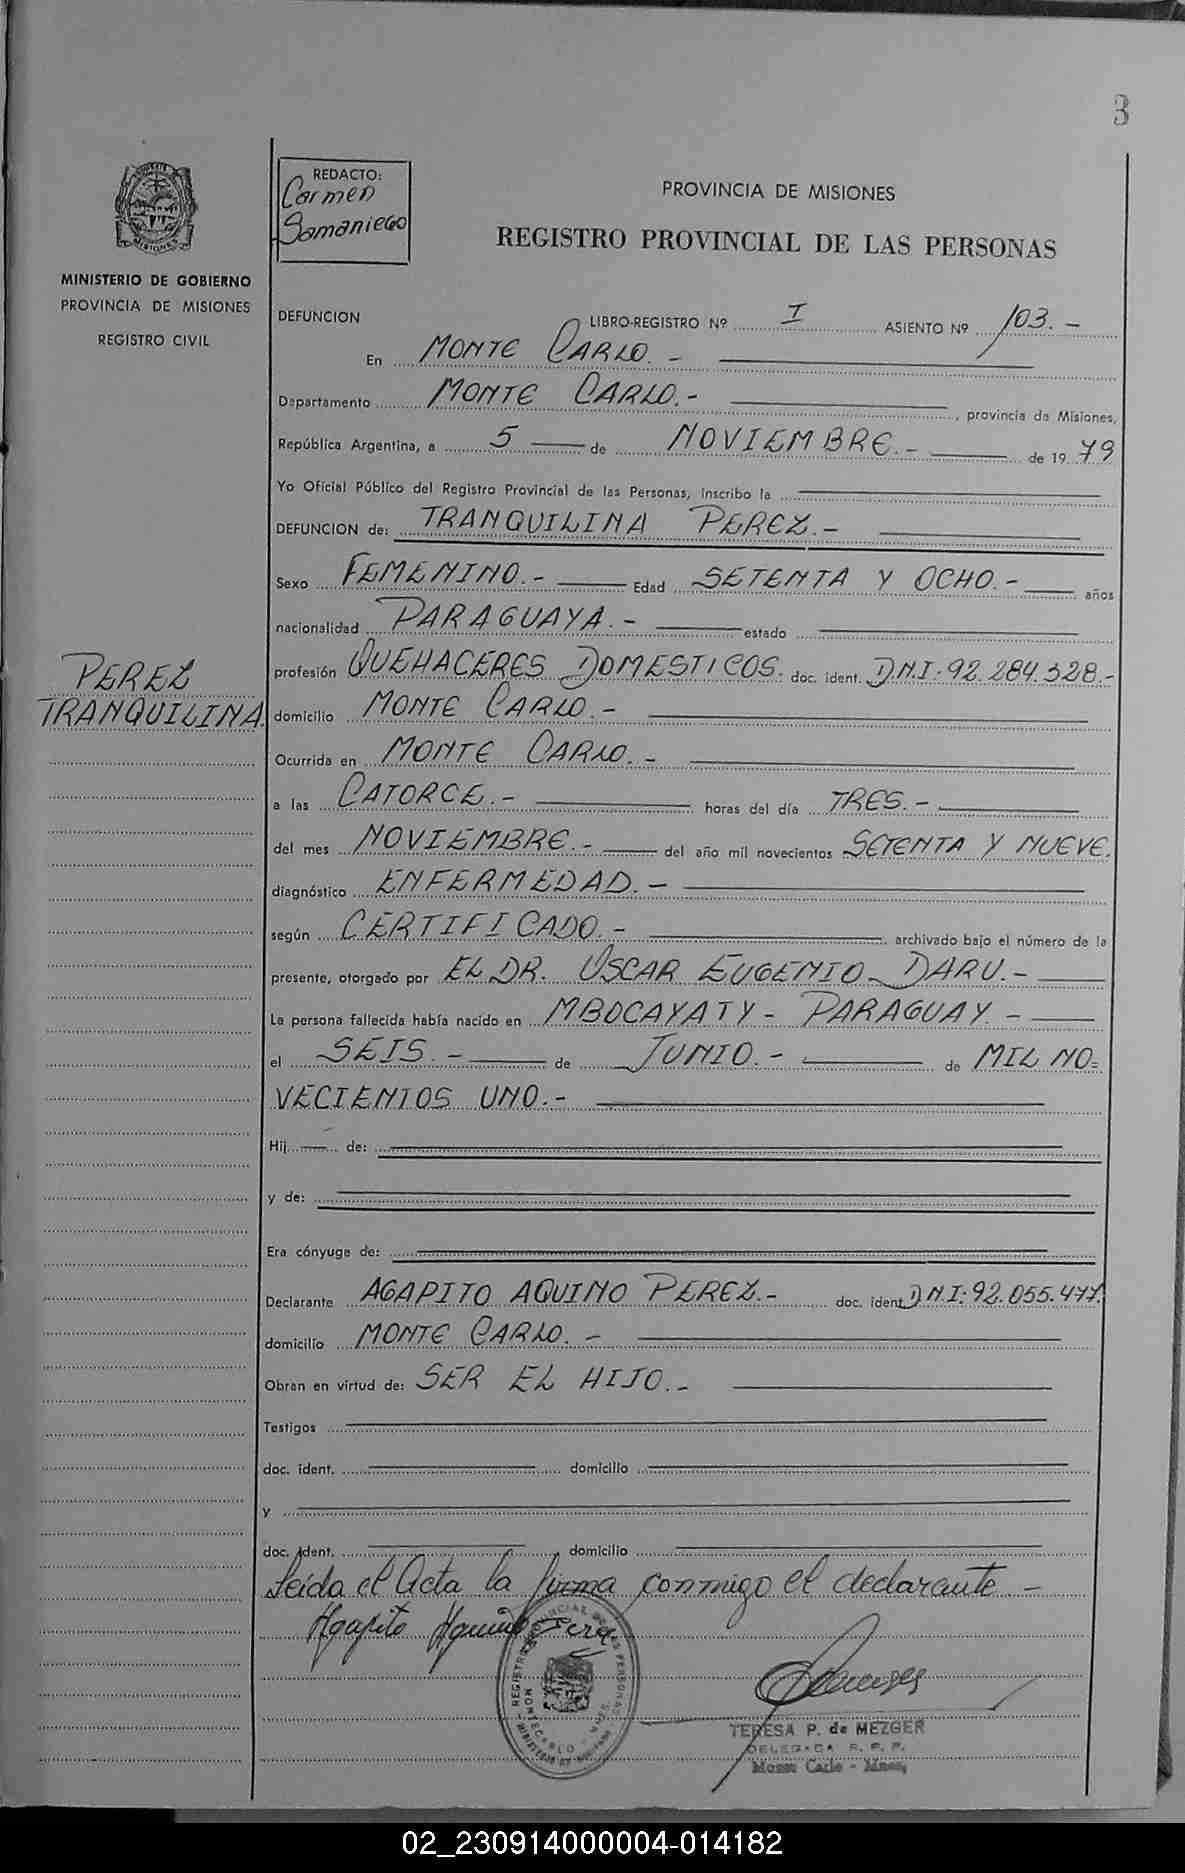 3
MISIONES
MINISTERIO DE GOBIERNO
PROVINCIA DE MISIONES
REGISTRO CIVIL
REDACTO:
Carmen
Samaniego
PROVINCIA DE MISIONES
REGISTRO PROVINCIAL DE LAS PERSONAS
DEFUNCION LIBRO-REGISTRO Nº I ASIENTO Nº 103.-
En MONTE CARLO.-
Departamento MONTE CARLO.- , provincia de Misiones,
República Argentina, a 5 de NOVIEMBRE.- de 19 79
Yo Oficial Público del Registro Provincial de las Personas, inscribo la
DEFUNCION de: TRANQUILINA PEREZ.-
Sexo FEMENINO.- Edad SETENTA Y OCHO.- años
nacionalidad PARAGUAYA.- estado
PEREZ
TRANQUILINA.
profesión QUEHACERES DOMESTICOS. doc. ident. D.N.I: 92.284.328.-
domicilio MONTE CARLO.-
Ocurrida en MONTE CARLO.-
a las CATORCE.- horas del día TRES.-
del mes NOVIEMBRE.- del año mil novecientos SETENTA Y NUEVE.
diagnóstico ENFERMEDAD.-
según CERTIFICADO.- archivado bajo el número de la
presente, otorgado por EL DR. OSCAR EUGENIO DARU.-
La persona fallecida había nacido en MBOCAYATY - PARAGUAY.-
el SEIS.- de JUNIO.- de MIL NO=
VECIENTOS UNO.-
Hij de:
y de:
Era cónyuge de:
Declarante AGAPITO AQUINO PEREZ.- doc. ident D.N.I: 92.055.477.
domicilio MONTE CARLO.-
Obran en virtud de: SER EL HIJO.-
Testigos
doc. ident. domicilio
y
doc. ident. domicilio
Leida el Acta la firma conmigo el declarante -
Agapito Aquino Perez
REGISTRO PROVINCIAL DE LAS PERSONAS
MONTECARLO - MNES.
TERESA P. de MEZGER
DELEGADA R. P. P.
Monte Carlo - Mnes,
02_230914000004-014182